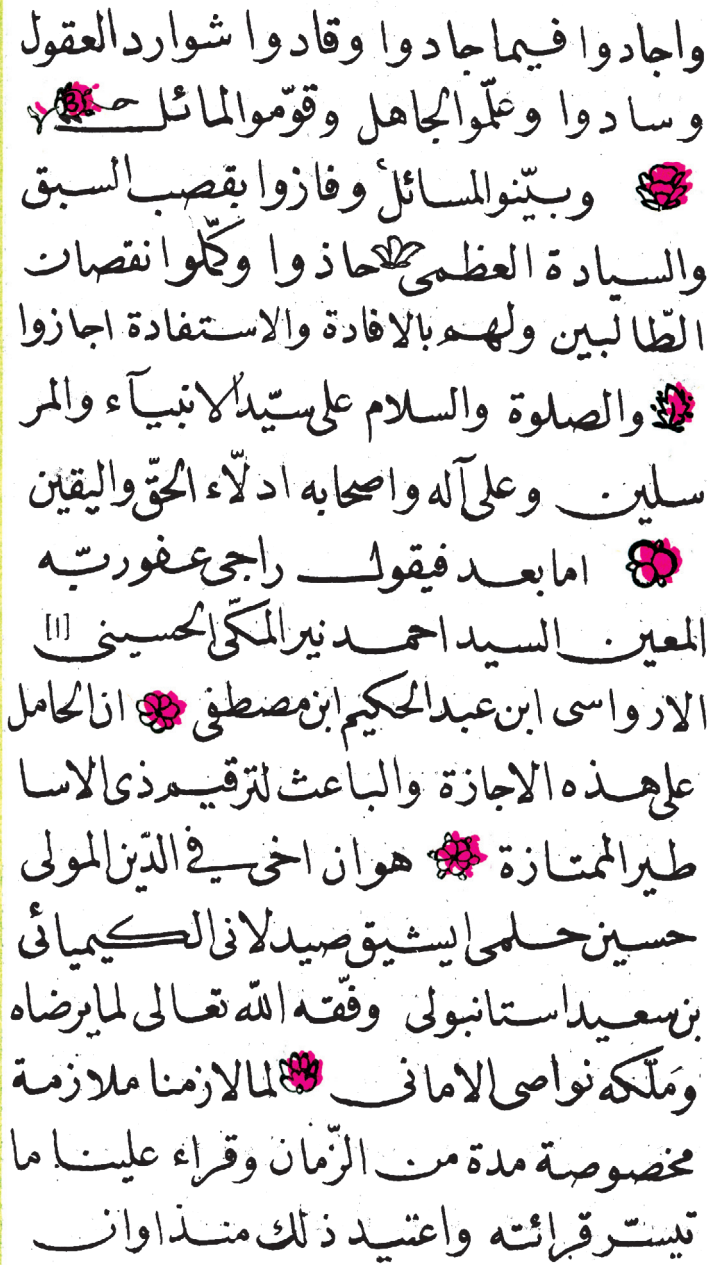 واجادوا فيما جادوا وقادوا شوارد العقول
وسادوا وعلّموا الجاهل وقوّموا المائل
وبيّنوا المسائل وفازوا بقصب السبق
والسيادة العظمى حاذوا وكمّلوا نقصان
الطّالبين ولهم بالافادة والاستفادة اجازوا
والصلوة والسلام على سيّد الانبيآء والمر
سلين وعلى آله واصحابه ادلّاء الحقّ واليقين
اما بعد فيقول راجى عفو ربّه
المعين السيد احمد نير المكّى الحسينى [١]
الارواسى ابن عبد الحكيم ابن مصطفى ان الحامل
على هذه الاجازة والباعث لترقيم ذى الاسا
طير الممتازة هو ان اخى في الدّين المولى
حسين حلمى ايشيق صيدلانى الكيميائى
بن سعيد استانبولى وفّقه الله تعالى لما يرضاه
ومَلّكه نواصى الامانى لما لازمنا ملازمة
مخصوصة مدة من الزّمان وقراء علينا ما
تيسّر قرائته واعتنيد ذلك منذ اوان